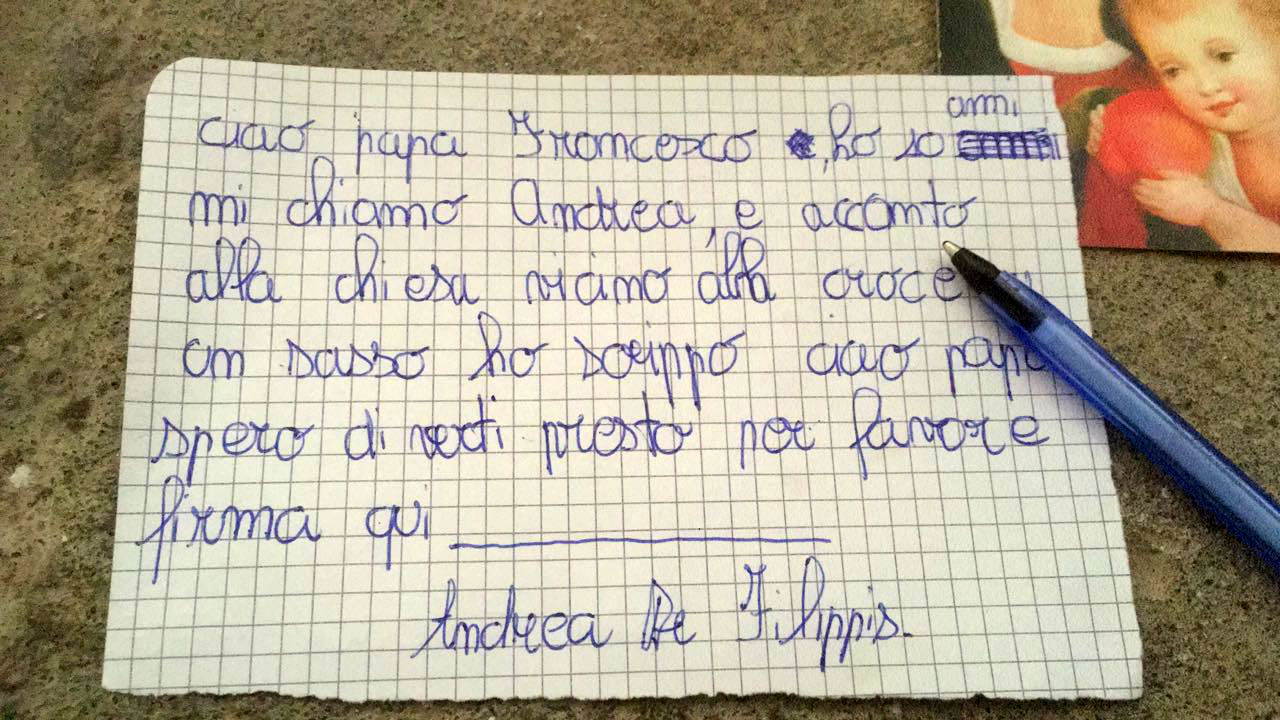 ciao papa Francesco, ho 10 anni
mi chiamo Andrea, e accanto
alla chiesa vicino alla croce
un sasso ho scrippo ciao papa
spero di vederti presto per favore
firma qui
Andrea De Filippis.